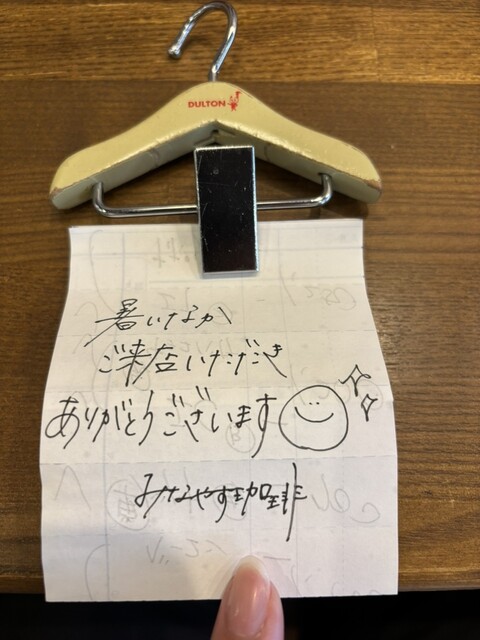 DULTON
暑いなか
ご来店いただき
ありがとうございます
みなやす珈琲